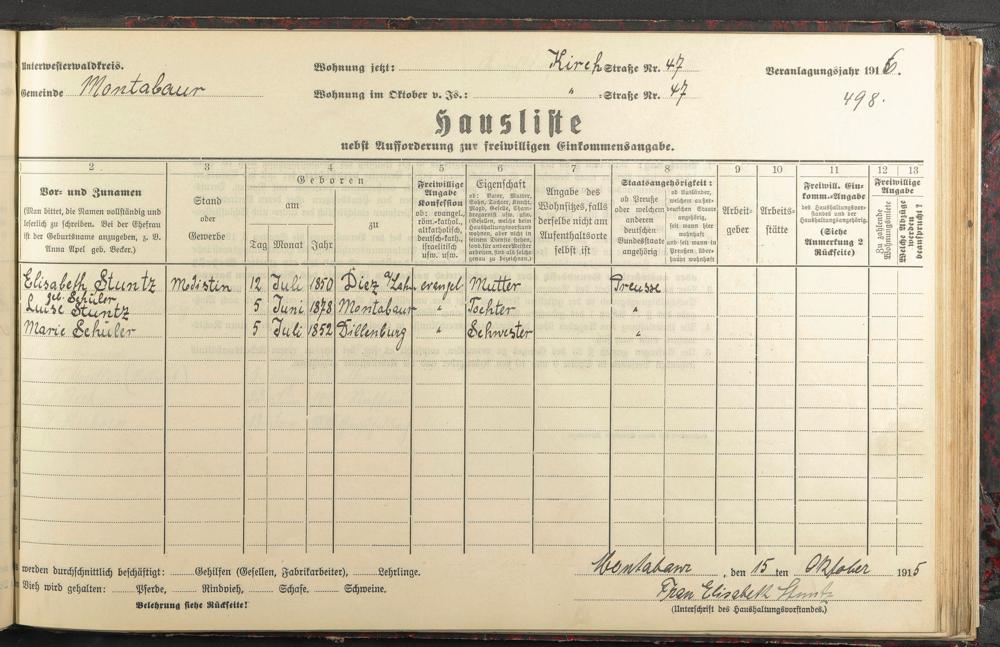 Unterwesterwaldkreis.
Wohnung jetzt: Kirch Straße Nr. 47
Veranlagungsjahr 1916.
Gemeinde Montabaur
Wohnung im Oktober v. Js.: " -Straße Nr. 47
498.
Hausliste
nebst Aufforderung zur freiwilligen Einkommensangabe.
2 3 4 5 6 7 8 9 10 11 12 13
Vor- und Zunamen
(Man bittet, die Namen vollständig und
leserlich zu schreiben. Bei der Ehefrau
ist der Geburtsname anzugeben, z. B.
Anna Apel geb. Becker.)
Stand
oder
Gewerbe
Geboren
am
zu
Tag Monat Jahr
Freiwillige
Angabe
Konfession
ob: evangel.,
röm.-kathol.,
altkatholisch,
deutsch-kath.,
israelitisch
usw. usw.
Eigenschaft
ob: Vater, Mutter,
Sohn, Tochter,
Koch, Knecht,
Magd, Geselle, Cham-
bregarnist usw. usw.
(Gesellen, welche beim
Haushaltungsvorstand
wohnen, aber nicht in
seinem Dienste stehen,
sond. für andere Meister
arbeiten, sind als solche
genau zu bezeichnen.)
Angabe des
Wohnsitzes, falls
derselbe nicht am
Aufenthaltsorte
selbst ist
Staatsangehörigkeit:
ob Preuße
oder welchem
anderen
deutschen
Bundesstaate
angehörig
ob Ausländer,
welchem außer-
deutschen Staate
angehörig,
seit wann hier
wohnhaft
und seit wann in
Preußen über-
haupt wohnhaft
Arbeit-
geber
Arbeits-
stätte
Freiwill. Ein-
komm.-Angabe
des Haushaltungsvor-
standes und der
Haushaltungsangehörig.
(Siehe
Anmerkung 2
Rückseite)
Freiwillige
Angabe
Zu zahlende
Wohnungsmiete
Welche Abzüge
werden
beansprucht?
Elisabeth Stuntz Modistin 12 Juli 1850 Diez a/Lahn evangel Mutter Preusse
geb. Schüler
Luise Stuntz 5 Juni 1878 Montabaur " Tochter "
Marie Schüler 5 Juli 1852 Dillenburg " Schwester "
werden durchschnittlich beschäftigt: Gehilfen (Gesellen, Fabrikarbeiter), Lehrlinge.
Montabaur, den 15 ten Oktober 1915
Vieh wird gehalten: Pferde, Rindvieh, Schafe. Schweine.
Frau Elisabeth Stuntz
Belehrung siehe Rückseite!
(Unterschrift des Haushaltungsvorstandes.)